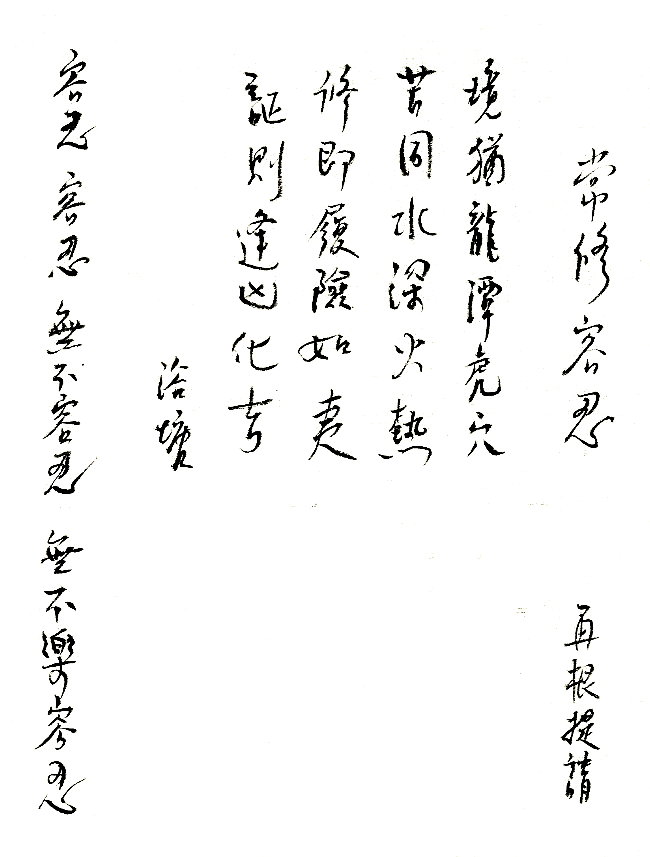 常修容忍
再根提請
境猶龍潭虎穴
苦同水深火熱
修即履險如夷
証則逢凶化吉
浴
容忍 容忍 無不容忍 無不樂容忍